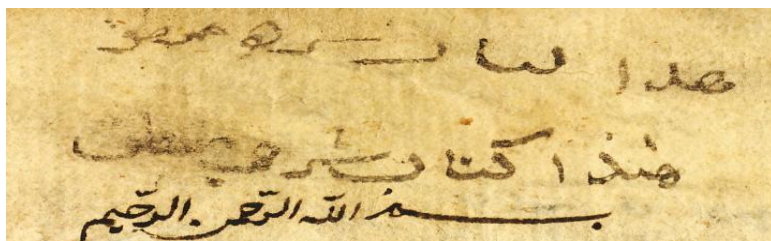 هذا كتاب شرح
هذا كتاب شرح
بسم الله الرحمن الرحيم